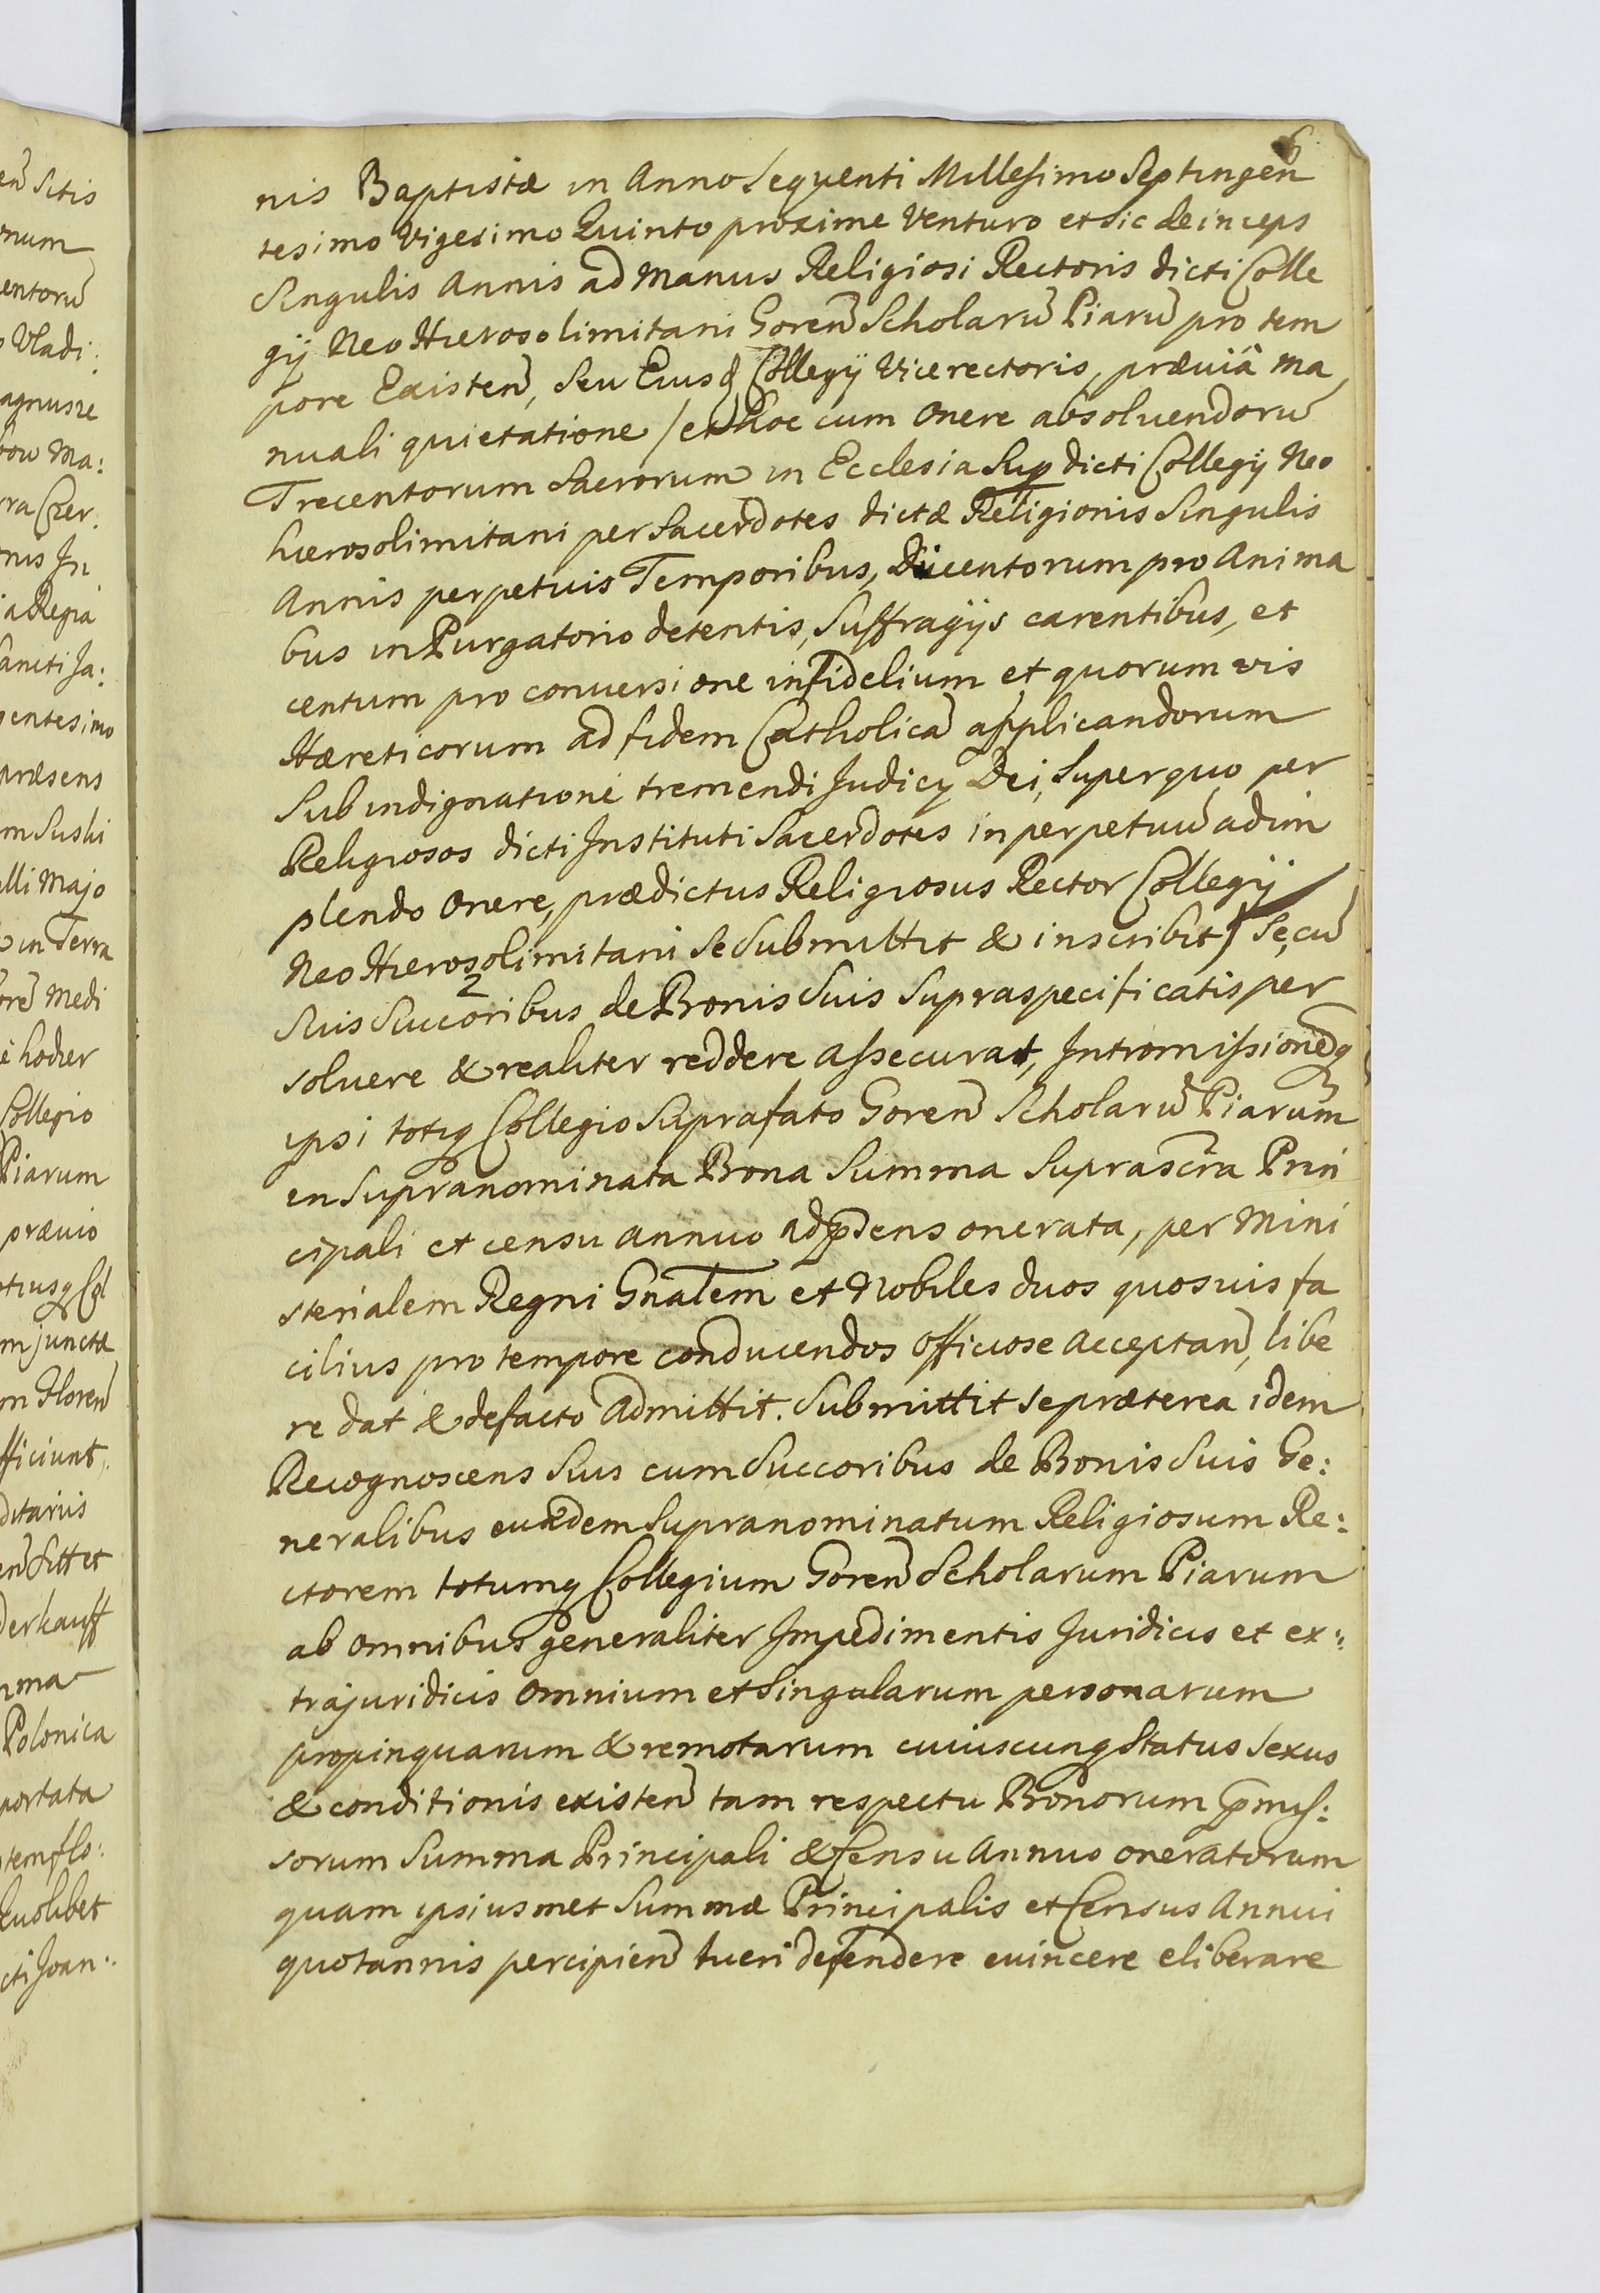 6
nis Baptistæ in Anno Sequenti Millesimo Septingen
tesimo Vigesimo Quinto proxime Venturo et sic deinceps
Singulis Annis ad Manus Religiosi Rectoris dicti Colle
gij Neo Hierosolimitani Goren Scholarũ Piarũ pro tem
pore Existen, seu Eiusq Collegij Vicerectoris, præviâ ma,
nuali quietatione / et hoc cum Onere absoluendorũ
Trecentorum Sacrorum in Ecclesia Sup dicti Collegij Neo
hierosolimitani per Sacerdotes dictæ Religionis Singulis
Annis perpetuis Temporibus, Ducentorum pro Anima
bus in Purgatorio detentis, Suffragijs carentibus, et
centum pro conuersione infidelium et quorumvis
Hæreticorum ad fidem Catholicã applicandorum
Sub indignatione tremendi Judicij Dei, Super quo per
Religiosos dicti Instituti Sacerdotes in perpetuũ adim
plendo Onere, prædictus Religiosus Rector Collegij
Neo Hierosolimitani se Submittit & inscribit) Se, cũ
Suis Succoribus de Bonis Suis Supraspecificatis per
soluere & realiter reddere assecurat, Intromissionẽq
ipsi totiq Collegio Suprafato Goren Scholarũ Piarum
in Supranominata Bona Summa Suprascra Prin
cipali et censu annuo ad psens onerata, per Mini
sterialem Regni Gnalem et Nobiles duos quosuis fa
cilius pro tempore conducendos Officiose acceptan, libe
re dat & defacto Admittit. Submittit se præterea idem
Recognoscens Suis cum Succoribus de Bonis Suis Ge:
neralibus eundem Supranominatum Religiosum Re:
ctorem totumq Collegium Goren Scholarum Piarum
ab omnibus generaliter Impedimentis Juridicis et ex:
trajuridicis omnium et Singularum personarum
propinquarum & remotarum cuiuscunq Status sexus
& conditionis existen tam respectu Bonorum pmis:
sorum Summa Principali & Censu Annuo oneratorum
quam ipsiusmet Summæ Principalis et Census Annui
quotannis percipien tueri defendere euincere eliberare